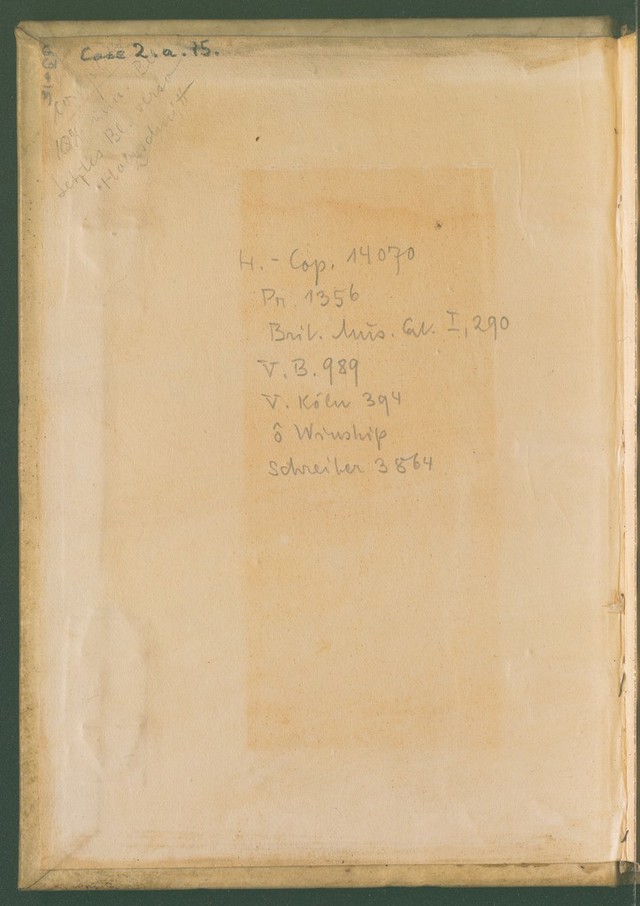 Case 2.a.15.
letztes Bl. verso
Holzschnitt
H.-Cop. 14070
Pr. 1356
Brit. Mus. Cat. I, 290
V.B. 989
V. Köln 394
ô Winship
Schreiber 3864